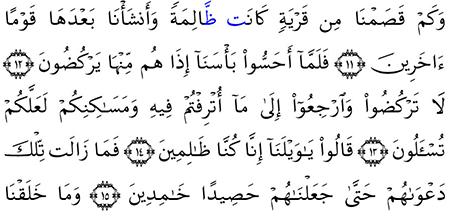 وَكَمْ قَصَمْنَا مِن قَرْيَةٍ كَانَت ظَّالِمَةً وَأَنشَأْنَا بَعْدَهَا قَوْمًا
ءَاخَرِينَ ﴿١١﴾ فَلَمَّآ أَحَسُّوا۟ بَأْسَنَآ إِذَا هُم مِّنْهَا يَرْكُضُونَ ﴿١٢﴾
لَا تَرْكُضُوا۟ وَٱرْجِعُوٓا۟ إِلَىٰ مَآ أُتْرِفْتُمْ فِيهِ وَمَسَـٰكِنِكُمْ لَعَلَّكُمْ
تُسْـَٔلُونَ ﴿١٣﴾ قَالُوا۟ يَـٰوَيْلَنَآ إِنَّا كُنَّا ظَـٰلِمِينَ ﴿١٤﴾ فَمَا زَالَت تِّلْكَ
دَعْوَىٰهُمْ حَتَّىٰ جَعَلْنَـٰهُمْ حَصِيدًا خَـٰمِدِينَ ﴿١٥﴾ وَمَا خَلَقْنَا